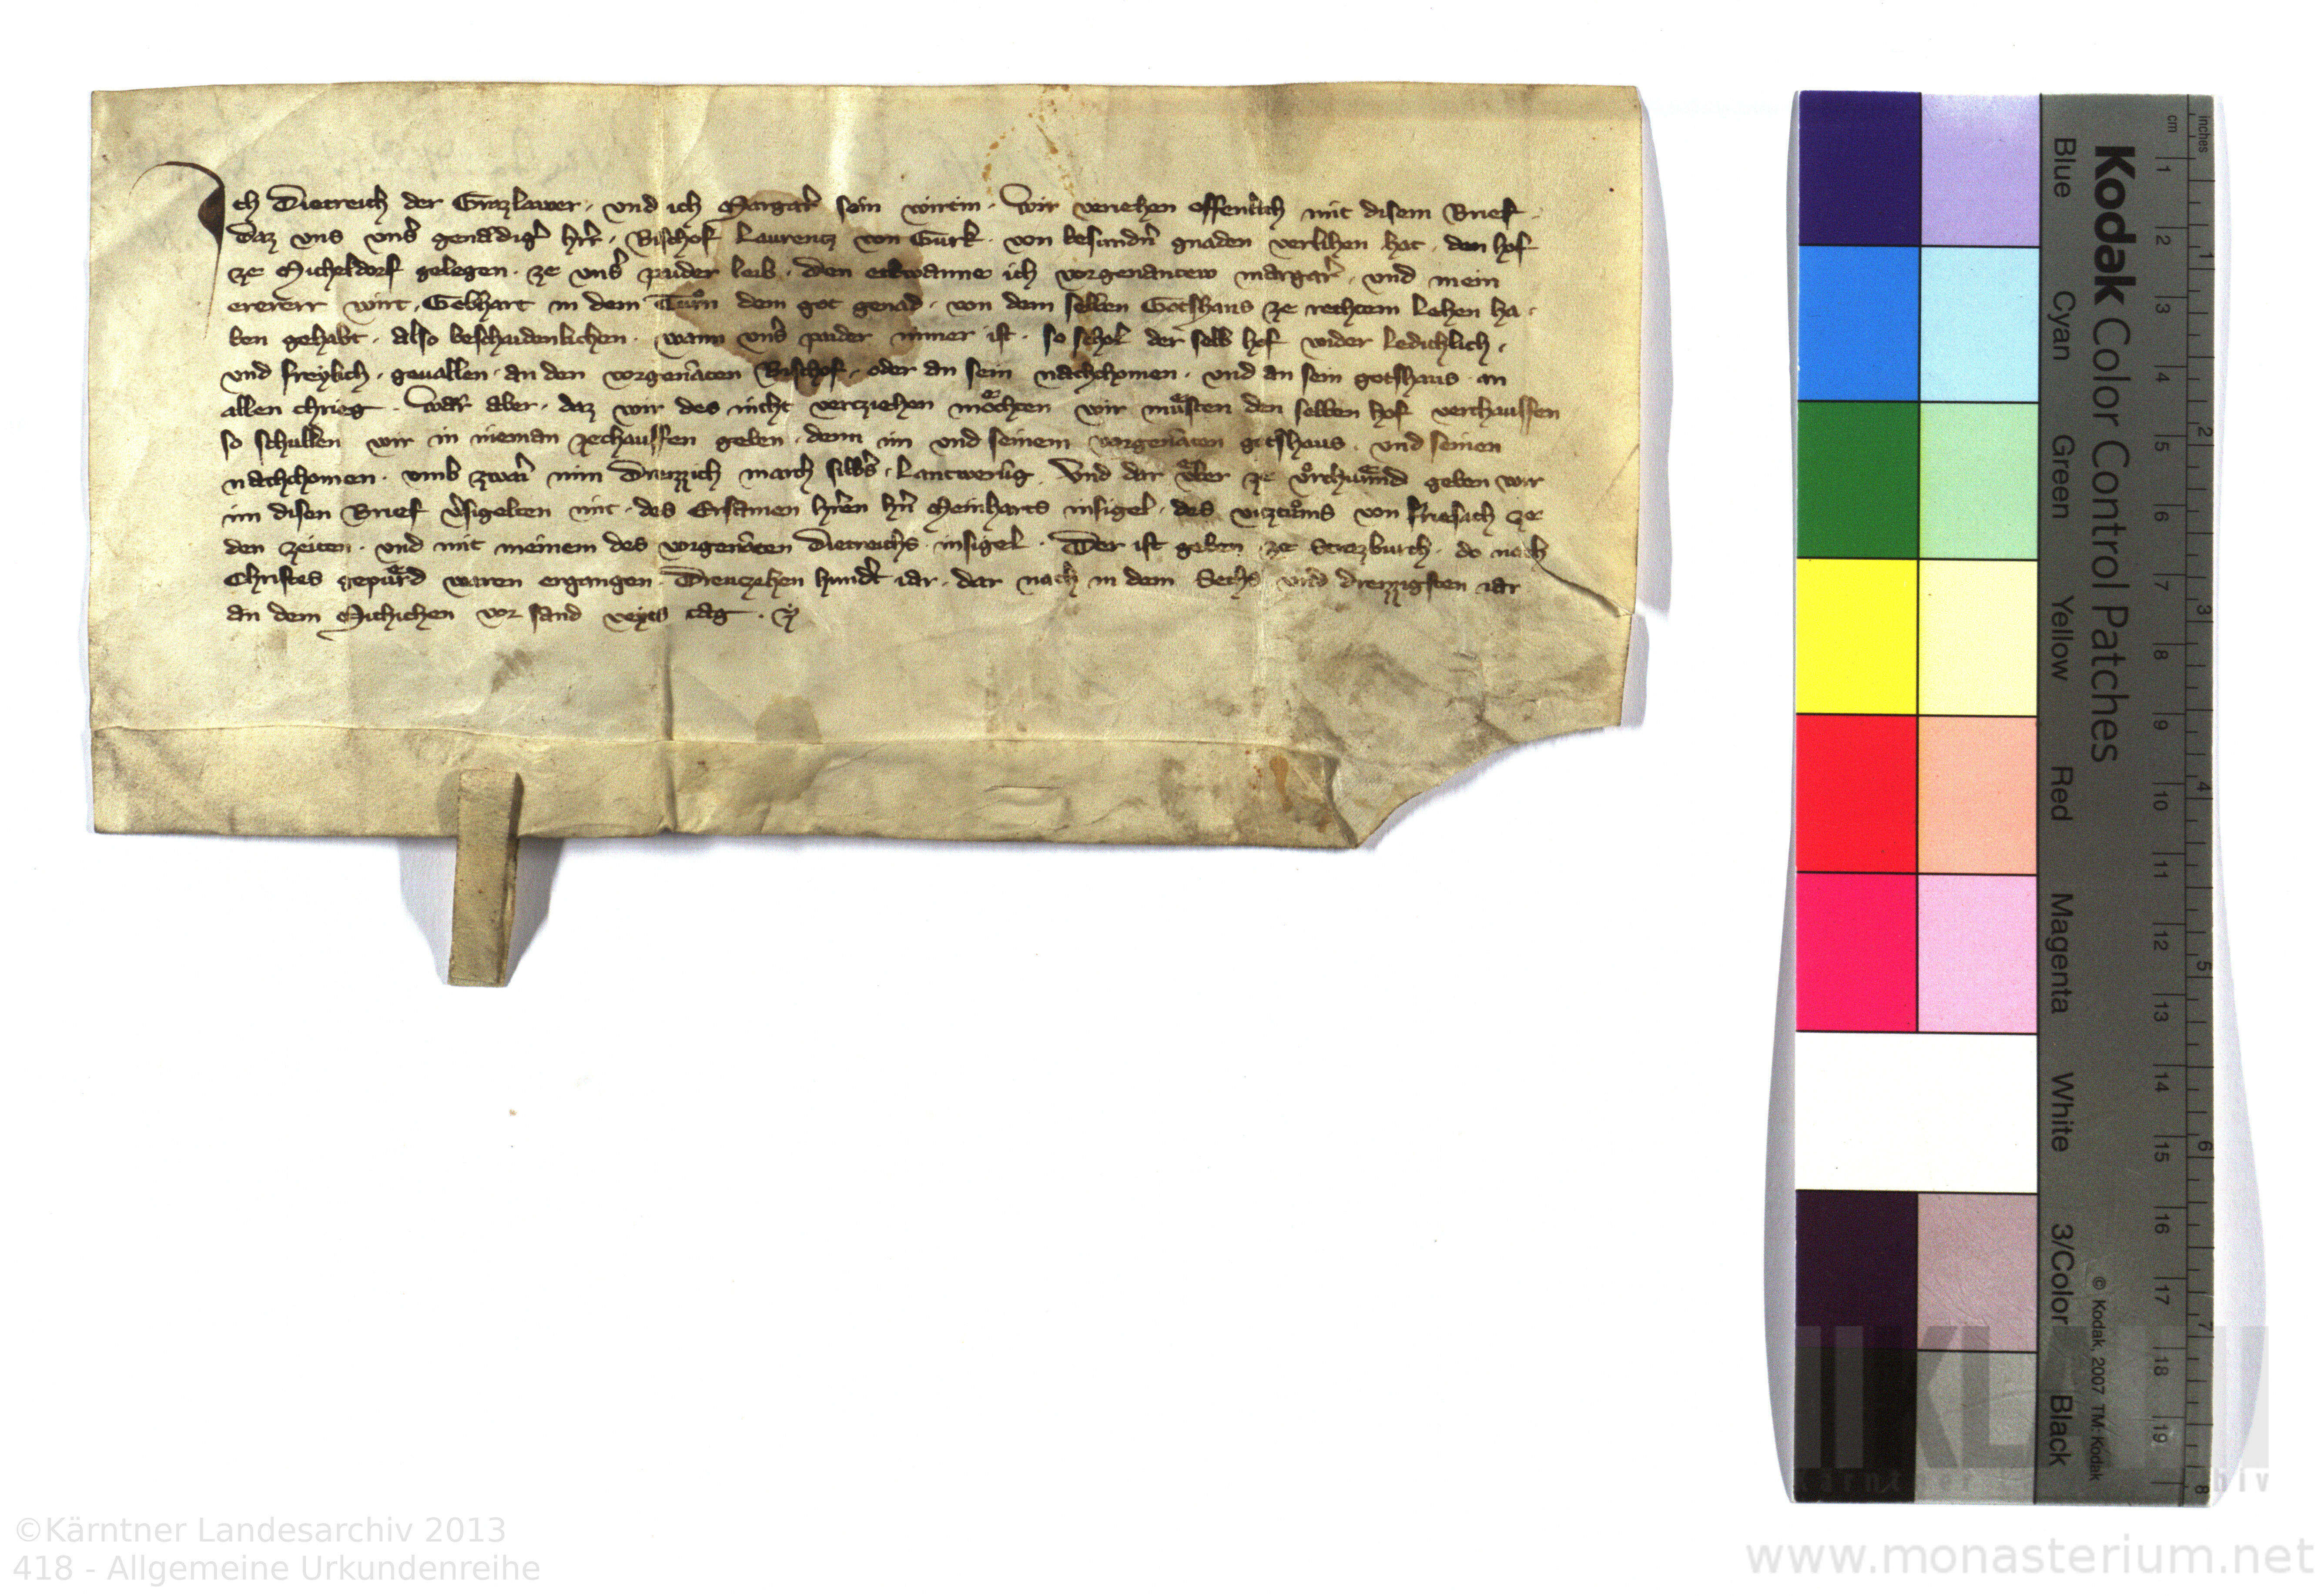 Ich Dietreich der Grazlawer · vnd ich Margar̄ sein wirtin · Wir veriehen offenlich mit disem Brief ·
daz vns vnẜ genadigˀ hˀr̄ · Bischof Laurentz von Gurk · von besundˀn gnaden verlihen hat · den hof
ze Micheldorf gelegen · ze vnẜ paider leib · den etwanne ich vorgenantew margar̄ · vnd mein
ererer wirt · Gebhart in dem Tuͦrn dem got genad · von dem selben Gotshaus ze rechtem Lehen ha·
ben gehabt · also beschaidenlichen · wann vnẜ paider nimer ist · so schol der selb hof wider ledichlich ·
vnd freylich · geuallen · an den vorgen̄aten Bischof · oder an sein nachchomen · vnd an sein gotshaus · an
allen chrieg · Waͤr aber · daz wir des nicht verziehen moͤchten wir muͤsten den selben hof verchauffen
so schullen wir in nieman zechauffen geben · denn im vnd seinem vorgen̄aten gotshaus · vnd seinen
nachchomen · vmb zwaī min Dreizzich march silbˀs · Lantwerūg · Vnd dar vͤber ze vrchuͤnd geben wir
im disen Brief vˀsigelten mit · des Ersamen hˀren hˀn Meinharts insigel · des viztuͦms von Friesach ze
den zeiten · vnd mit meinem des vorgen̄aten Dietreichs · insigel · Der ist geben ze Strazburch · do nach
Christes gepuͤrd waren ergangen · Dreutzehen hundˀt iar · dar nach in dem Sechs vnd dreizzigsten iar
an dem Michichen vor sand veyts tag ·
Kodak Color Control Patches
Blue Cyan Green Yellow Red Magenta White 3/Color Black
© Kodak, 2007 TM: Kodak
inches 1 2 3 4 5 6 7 8
cm 1 2 3 4 5 6 7 8 9 10 11 12 13 14 15 16 17 18 19
©Kärntner Landesarchiv 2013
418 - Allgemeine Urkundenreihe
www.monasterium.net